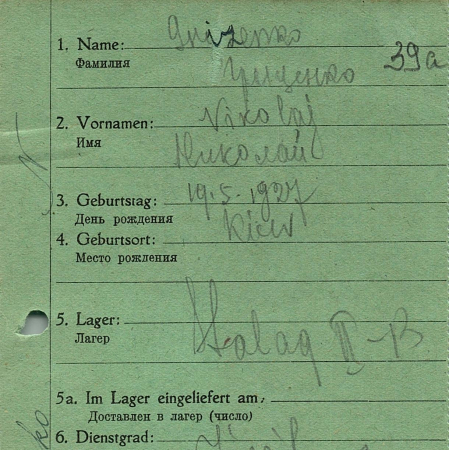 1. Name: Grizenko 39a
Фамилия Гриценко
2. Vornamen: Nikolaj
Имя Николай
3. Geburtstag: 19.5.1927
День рождения
4. Geburtsort: Kiew
Место рождения
5. Lager: Stalag II-B
Лагер
5a. Im Lager eingeliefert am:
Доставлен в лагер (число)
6. Dienstgrad: